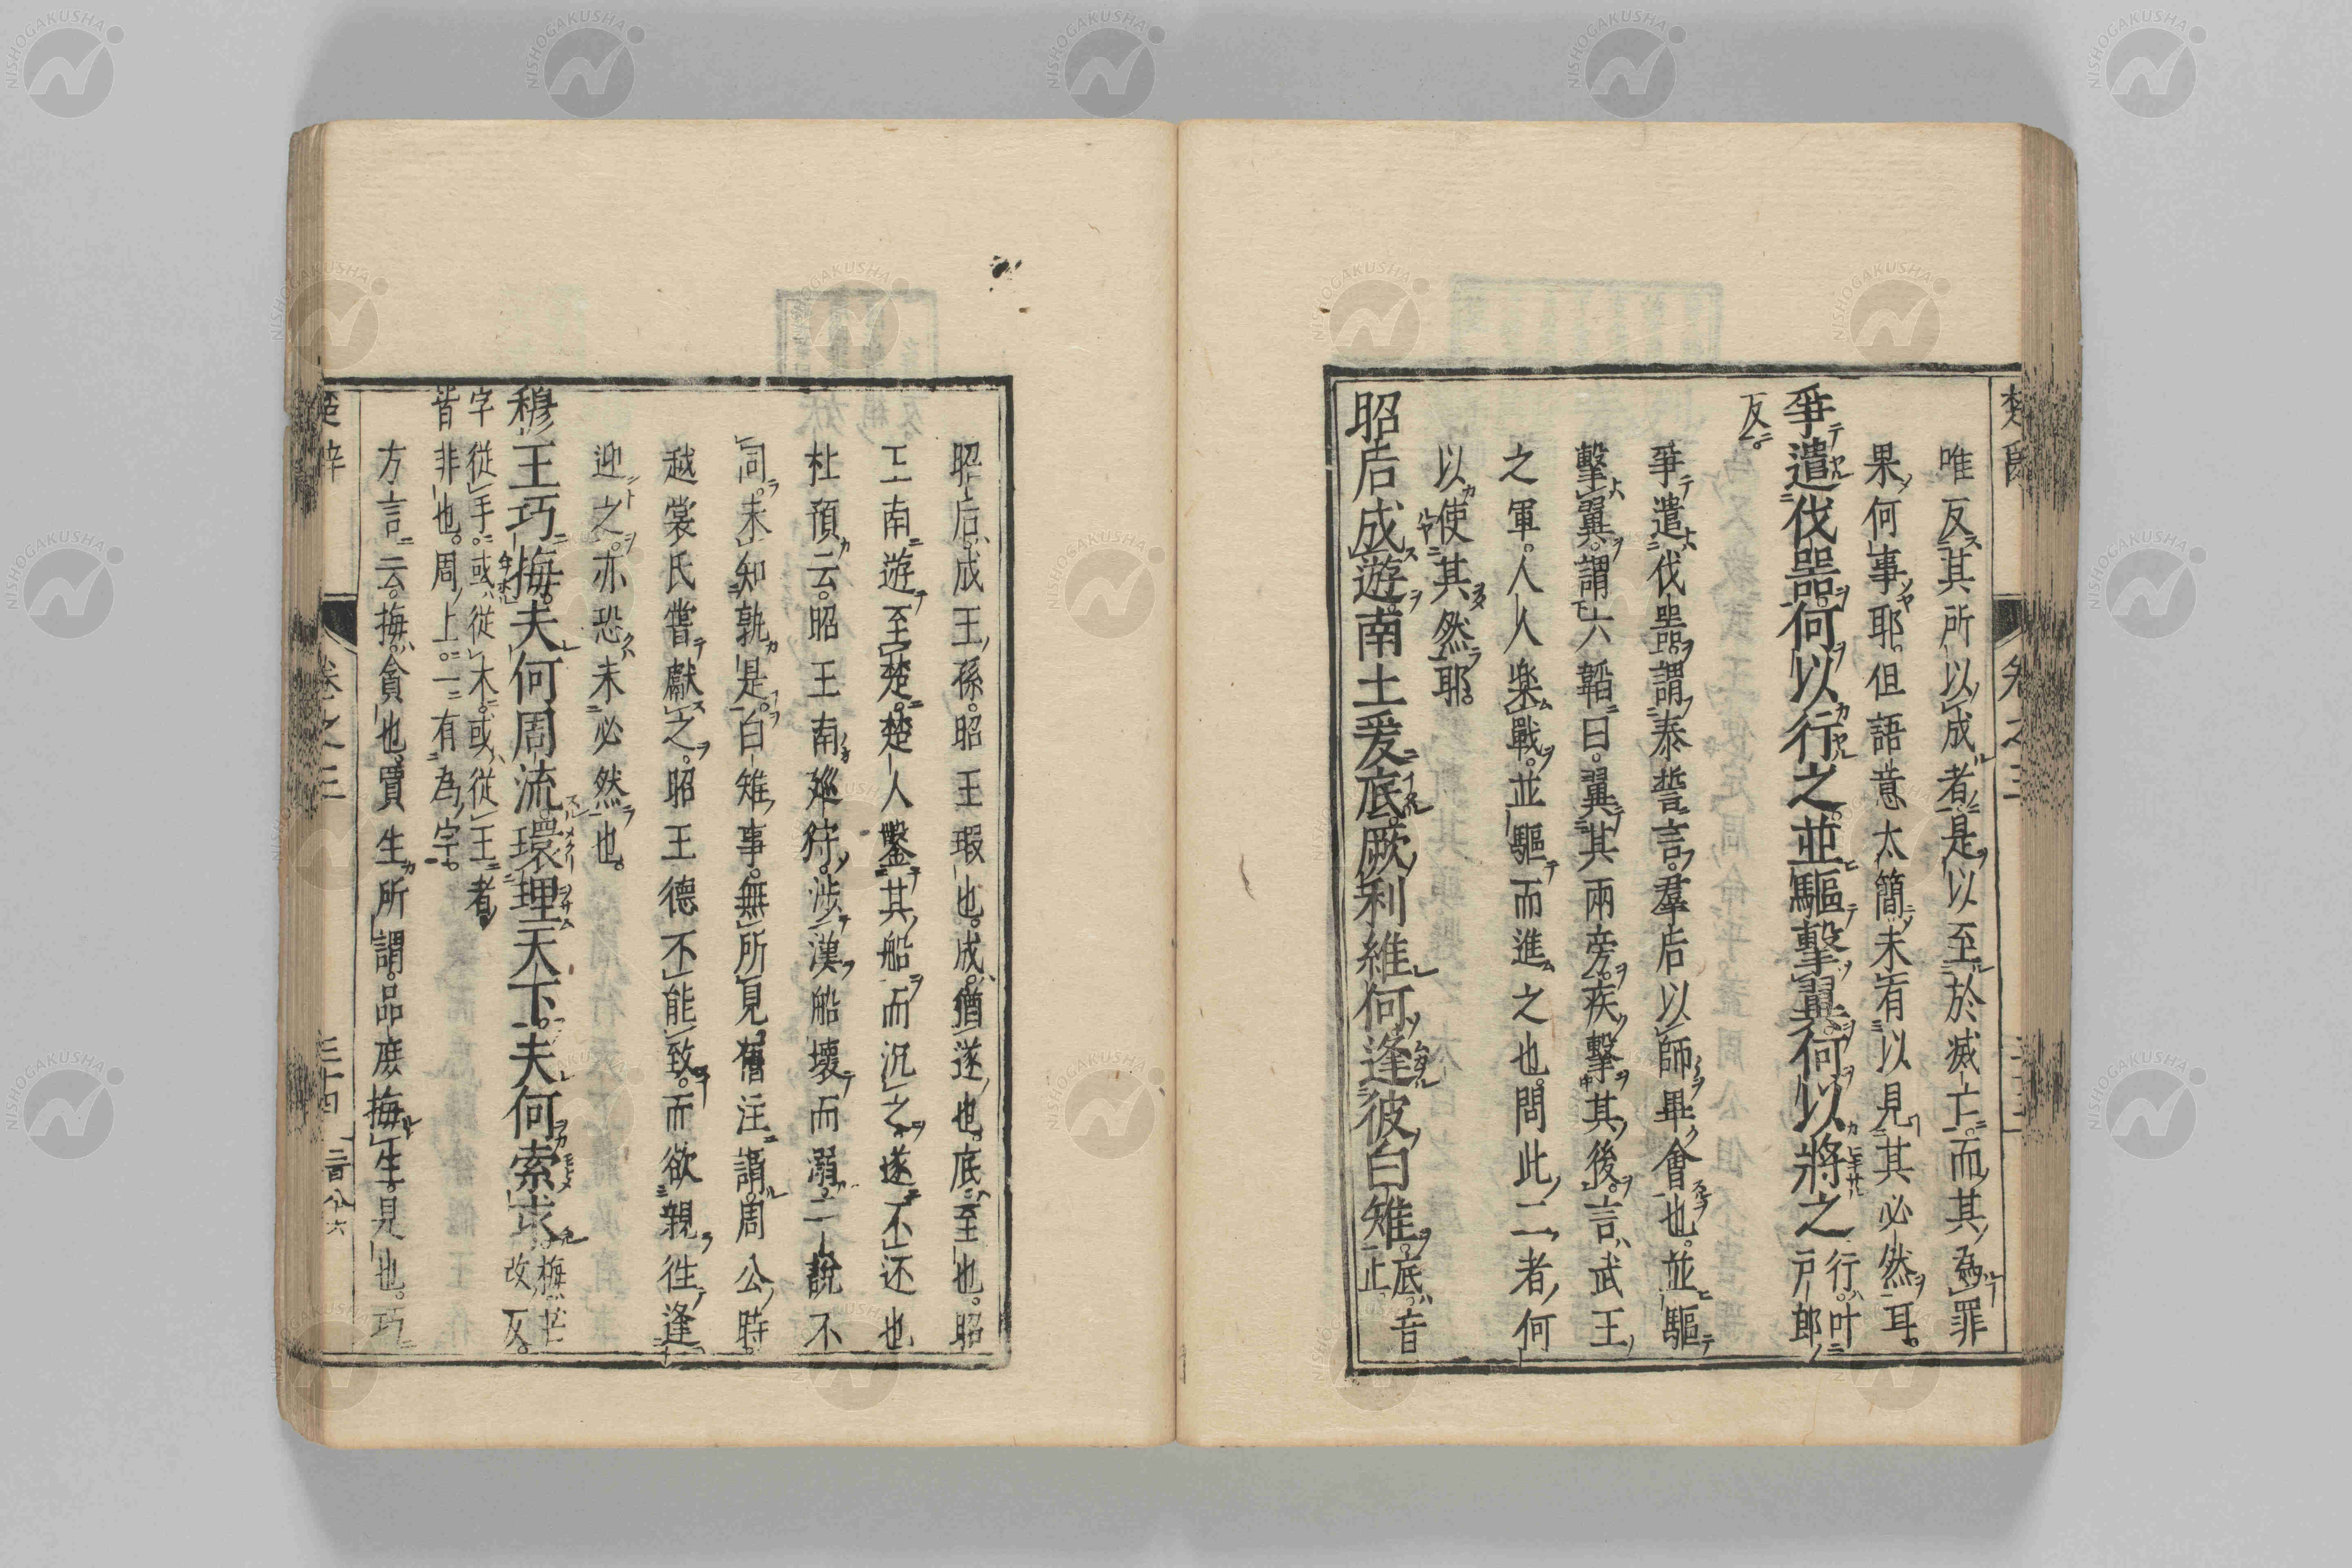 唯反其所以成者是以至於滅亡而其為罪
果何事耶。但語意太簡未有以見其必然耳。
爭遣伐器。何以行之。並驅擊翼。何以將之。行叶戶郎
反。
爭遣伐器。謂泰誓言。羣后以師畢會也。並驅
擊翼。謂六韜曰。翼其兩旁。疾擊其後。言武王
之軍。人人樂戰。並驅而進之也。問此二者。何
以使其然耶。
昭后成遊。南土爰底。厥利維何。逢彼白雉。底音止
昭后。成王孫。昭王瑕也。成。猶遂也。底。至也。昭
王南遊至楚。楚人鑿其船而沉之。遂不还也
杜預云。昭王南廵狩。涉漢船壊而溺。二說不
同。未知孰是。白雉事。無所見。舊注謂。周公時。
越裳氏嘗獻之。昭王德不能致。而欲親往逢
迎之。亦恐未必然也。
穆王巧挴。夫何周流。環理天下。夫何索求。挴芒改反。
字從手。或從木。或從王者
皆非也。周上。一有為字。
方言云。挴。貪也。賈生所謂。品庶挴生。見也。巧
楚辞
卷之三
三十四
二百八六
NISHOGAKUSHA